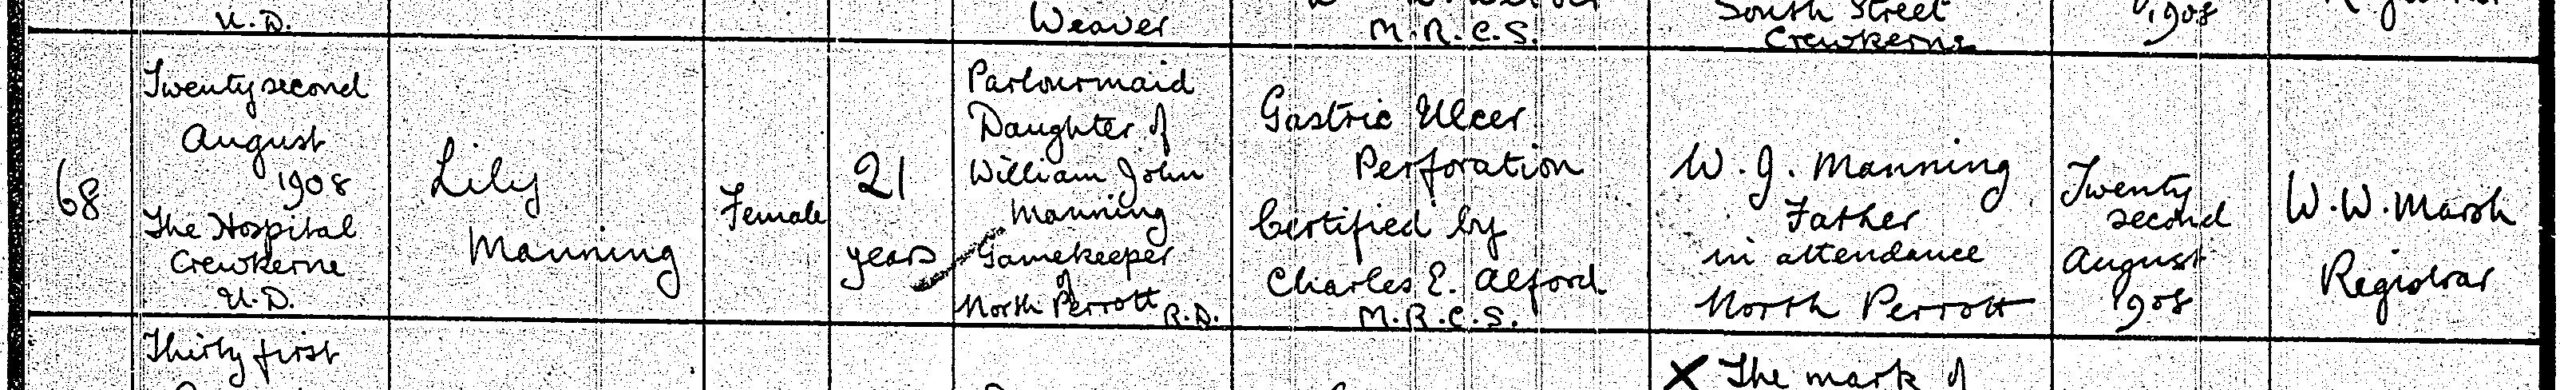 U.D.
Weaver
M.R.C.S.
South Street
Crewkerne
1908
68
Twenty second
August
1908
The Hospital
Crewkerne
U.D.
Lily
Manning
Female
21
years
Parlourmaid
Daughter of
William John
Manning
Gamekeeper
of
North Perrott R.D.
Gastric Ulcer
Perforation
Certified by
Charles E. Alford
M.R.C.S.
W. J. Manning
Father
in attendance
North Perrott
Twenty
second
August
1908
W. W. Marsh
Registrar
Thirty first
X The mark of